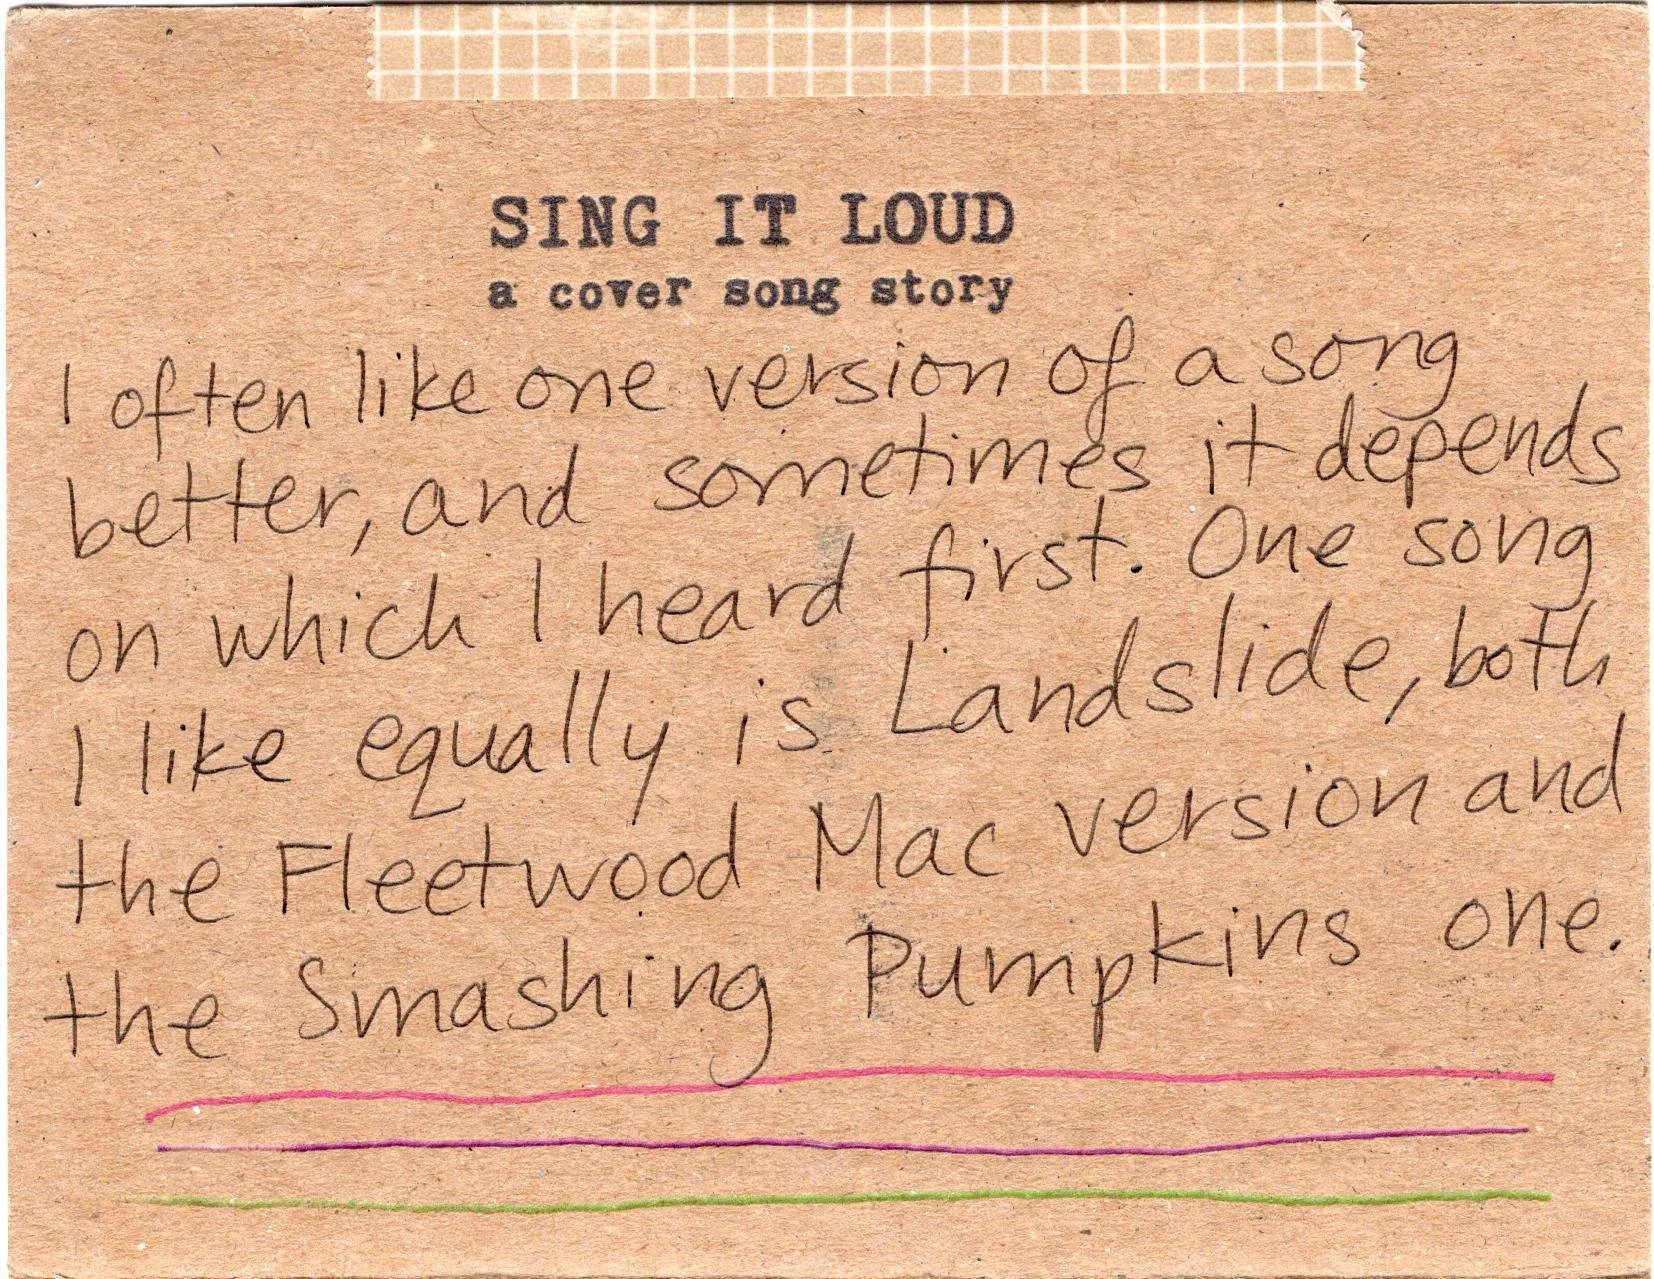 SING IT LOUD
a cover song story
I often like one version of a song
better, and sometimes it depends
on which I heard first. One song
I like equally is Landslide, both
the Fleetwood Mac version and
the Smashing Pumpkins one.